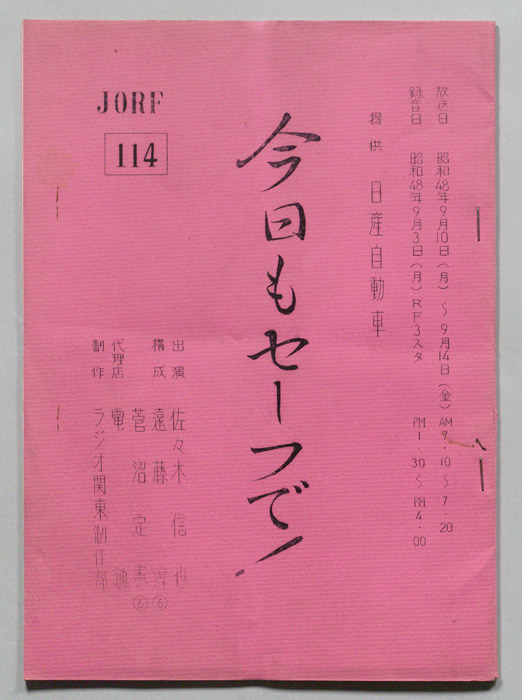 放送日 昭和48年9月10日(月)〜9月14日(金) AM7.10〜7.20
録音日 昭和48年9月3日(月)RF3スタ PM1.30〜PM4.00
提供 日産自動車
今日もセーフで!
JORF
114
出演 佐々木信也
構成 遠藤淳⑥
菅沼定憲⑥
代理店 電通
制作 ラジオ関東制作部